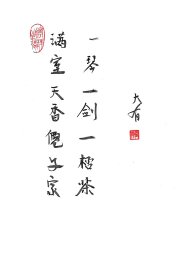 一琴一剑一樽茶
满室天香僊子家
大有